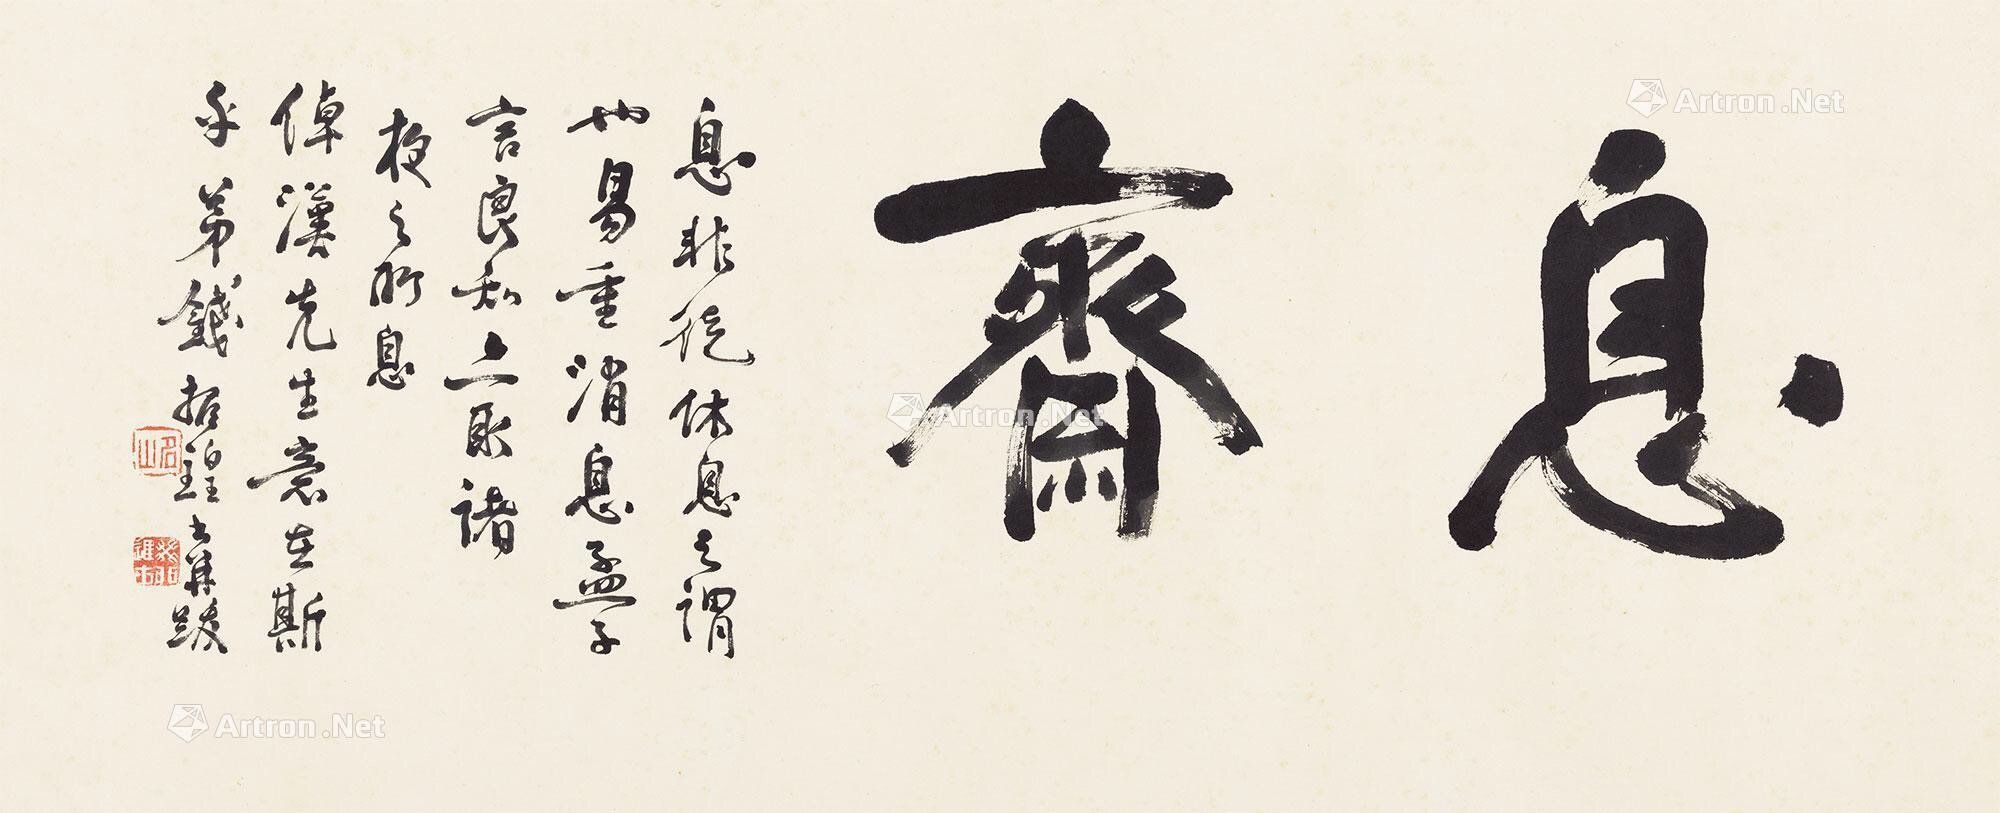 息齋
息非徒休息之謂
也易重消息孟子
言良知亦取諸
夜之所息
倬漢先生意在斯
乎弟錢振鍠書并跋
名山
Artron.Net
Artron.Net
Artron.Net